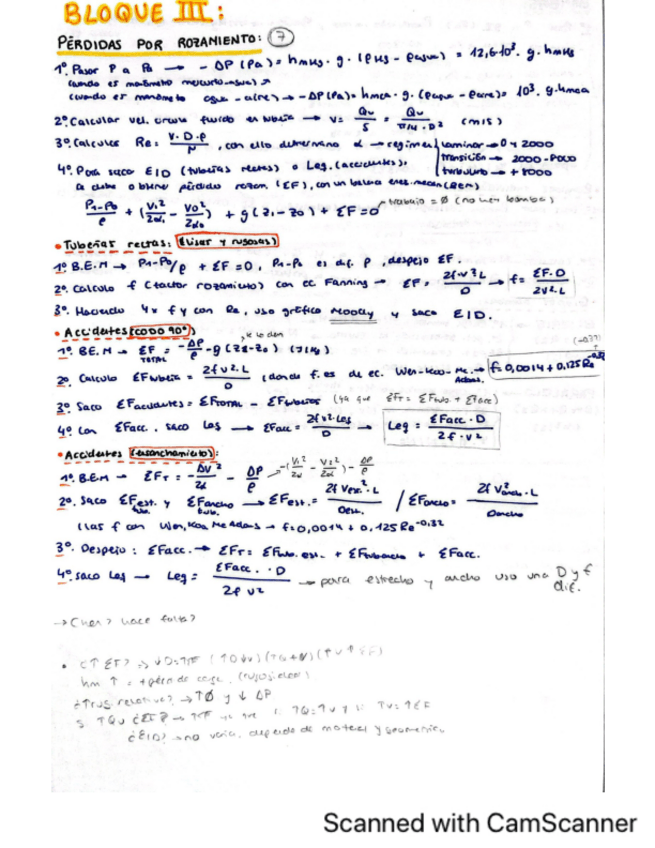 BLOQUE III:
PÉRDIDAS POR ROZAMIENTO: 7
1º Pasar P a Pa → -ΔP (Pa) = hmHg · g · (ρHg - ρagua) = 12,6·10³ · g · hmHg
cuando es manómetro mercurio-agua
cuando es manómetro agua-aire → -ΔP (Pa) = hmca · g · (ρagua - ρaire) = 10³ · g · hmca
2º Calcular vel. circula fluido en tubería → v = Qv/S = Qv/(π/4 · D²) (m/s)
3º Calculas Re = v·D·ρ/μ, con ello determino el → régimen laminar → 0 y 2000
transición → 2000 -
turbulento → +
4º Para saco E/D (tuberías rectas) o Leq. (accidentes):
obtener pérdida rozam. (ΣF), con un balance ener. mecán (BEM)
(P1-P0)/ρ + (V1²/2α1 - V0²/2α0) + g(z1-z0) + ΣF = 0 trabajo = 0 (no hay bomba)
• Tuberías rectas: (lisas y rugosas)
1º B.E.M → P1-P0/ρ + ΣF = 0, P1-P0 es dif. P, despejo ΣF.
2º Calculo f (factor rozamiento) con ec Fanning → ΣF = 2f·v²·L/D → f = ΣF·D/2v²·L
3º Haciendo 4xf y con Re, uso gráfico Moody y saco E/D.
• Accidentes (codo 90º)
1º B.E.M → ΣF TOTAL = -ΔP/ρ - g(z1-z0) (J/kg)
2º Calculo ΣFtubería = 2fv²·L/D (donde f. es de ec. Wen-Koo-Mc. Adams → f = 0,0014 + 0,125 Re^-0,32
3º Saco ΣFaccidentes = ΣFTOTAL - ΣFtuberías (ya que ΣFT = ΣFtub. + ΣFacc)
4º Con ΣFacc. saco Leq → ΣFacc = 2fv²·Leq/D → Leq = ΣFacc·D/2f·v²
• Accidentes (ensanchamiento):
1º B.E.M → ΣFT = -ΔV²/2α - ΔP/ρ → -(V1²/2α - V0²/2α) - ΔP/ρ
2º Saco ΣFest. y ΣFancho → ΣFest. = 2f Vest²·L/Dest. / ΣFancho = 2f Vancho²·L/Dancho
(las f con Wen, Koo, Mc Adams → f = 0,0014 + 0,125 Re^-0,32
3º Despejo: ΣFacc. → ΣFT = ΣFtub. est. + ΣFtubancho + ΣFacc.
4º saco Leq → Leq = ΣFacc.·D/2f v² → para estrecho y ancho uso una D y f dif.
→ hace falta?
hm ↑ = + pérd de carga (rugosidad)
¿E/D? → no varía, depende de material y geometría
Scanned with CamScanner